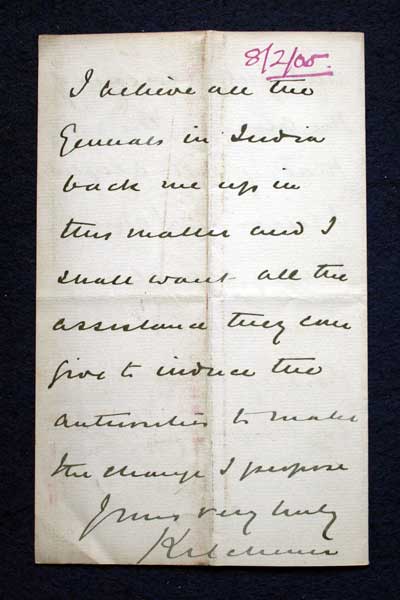 8/2/05.
I believe all the
Generals in India
back me up in
this matter and I
shall want all the
assistance they can
give to induce the
authorities to make
the change I propose
Yours very truly
Kitchener